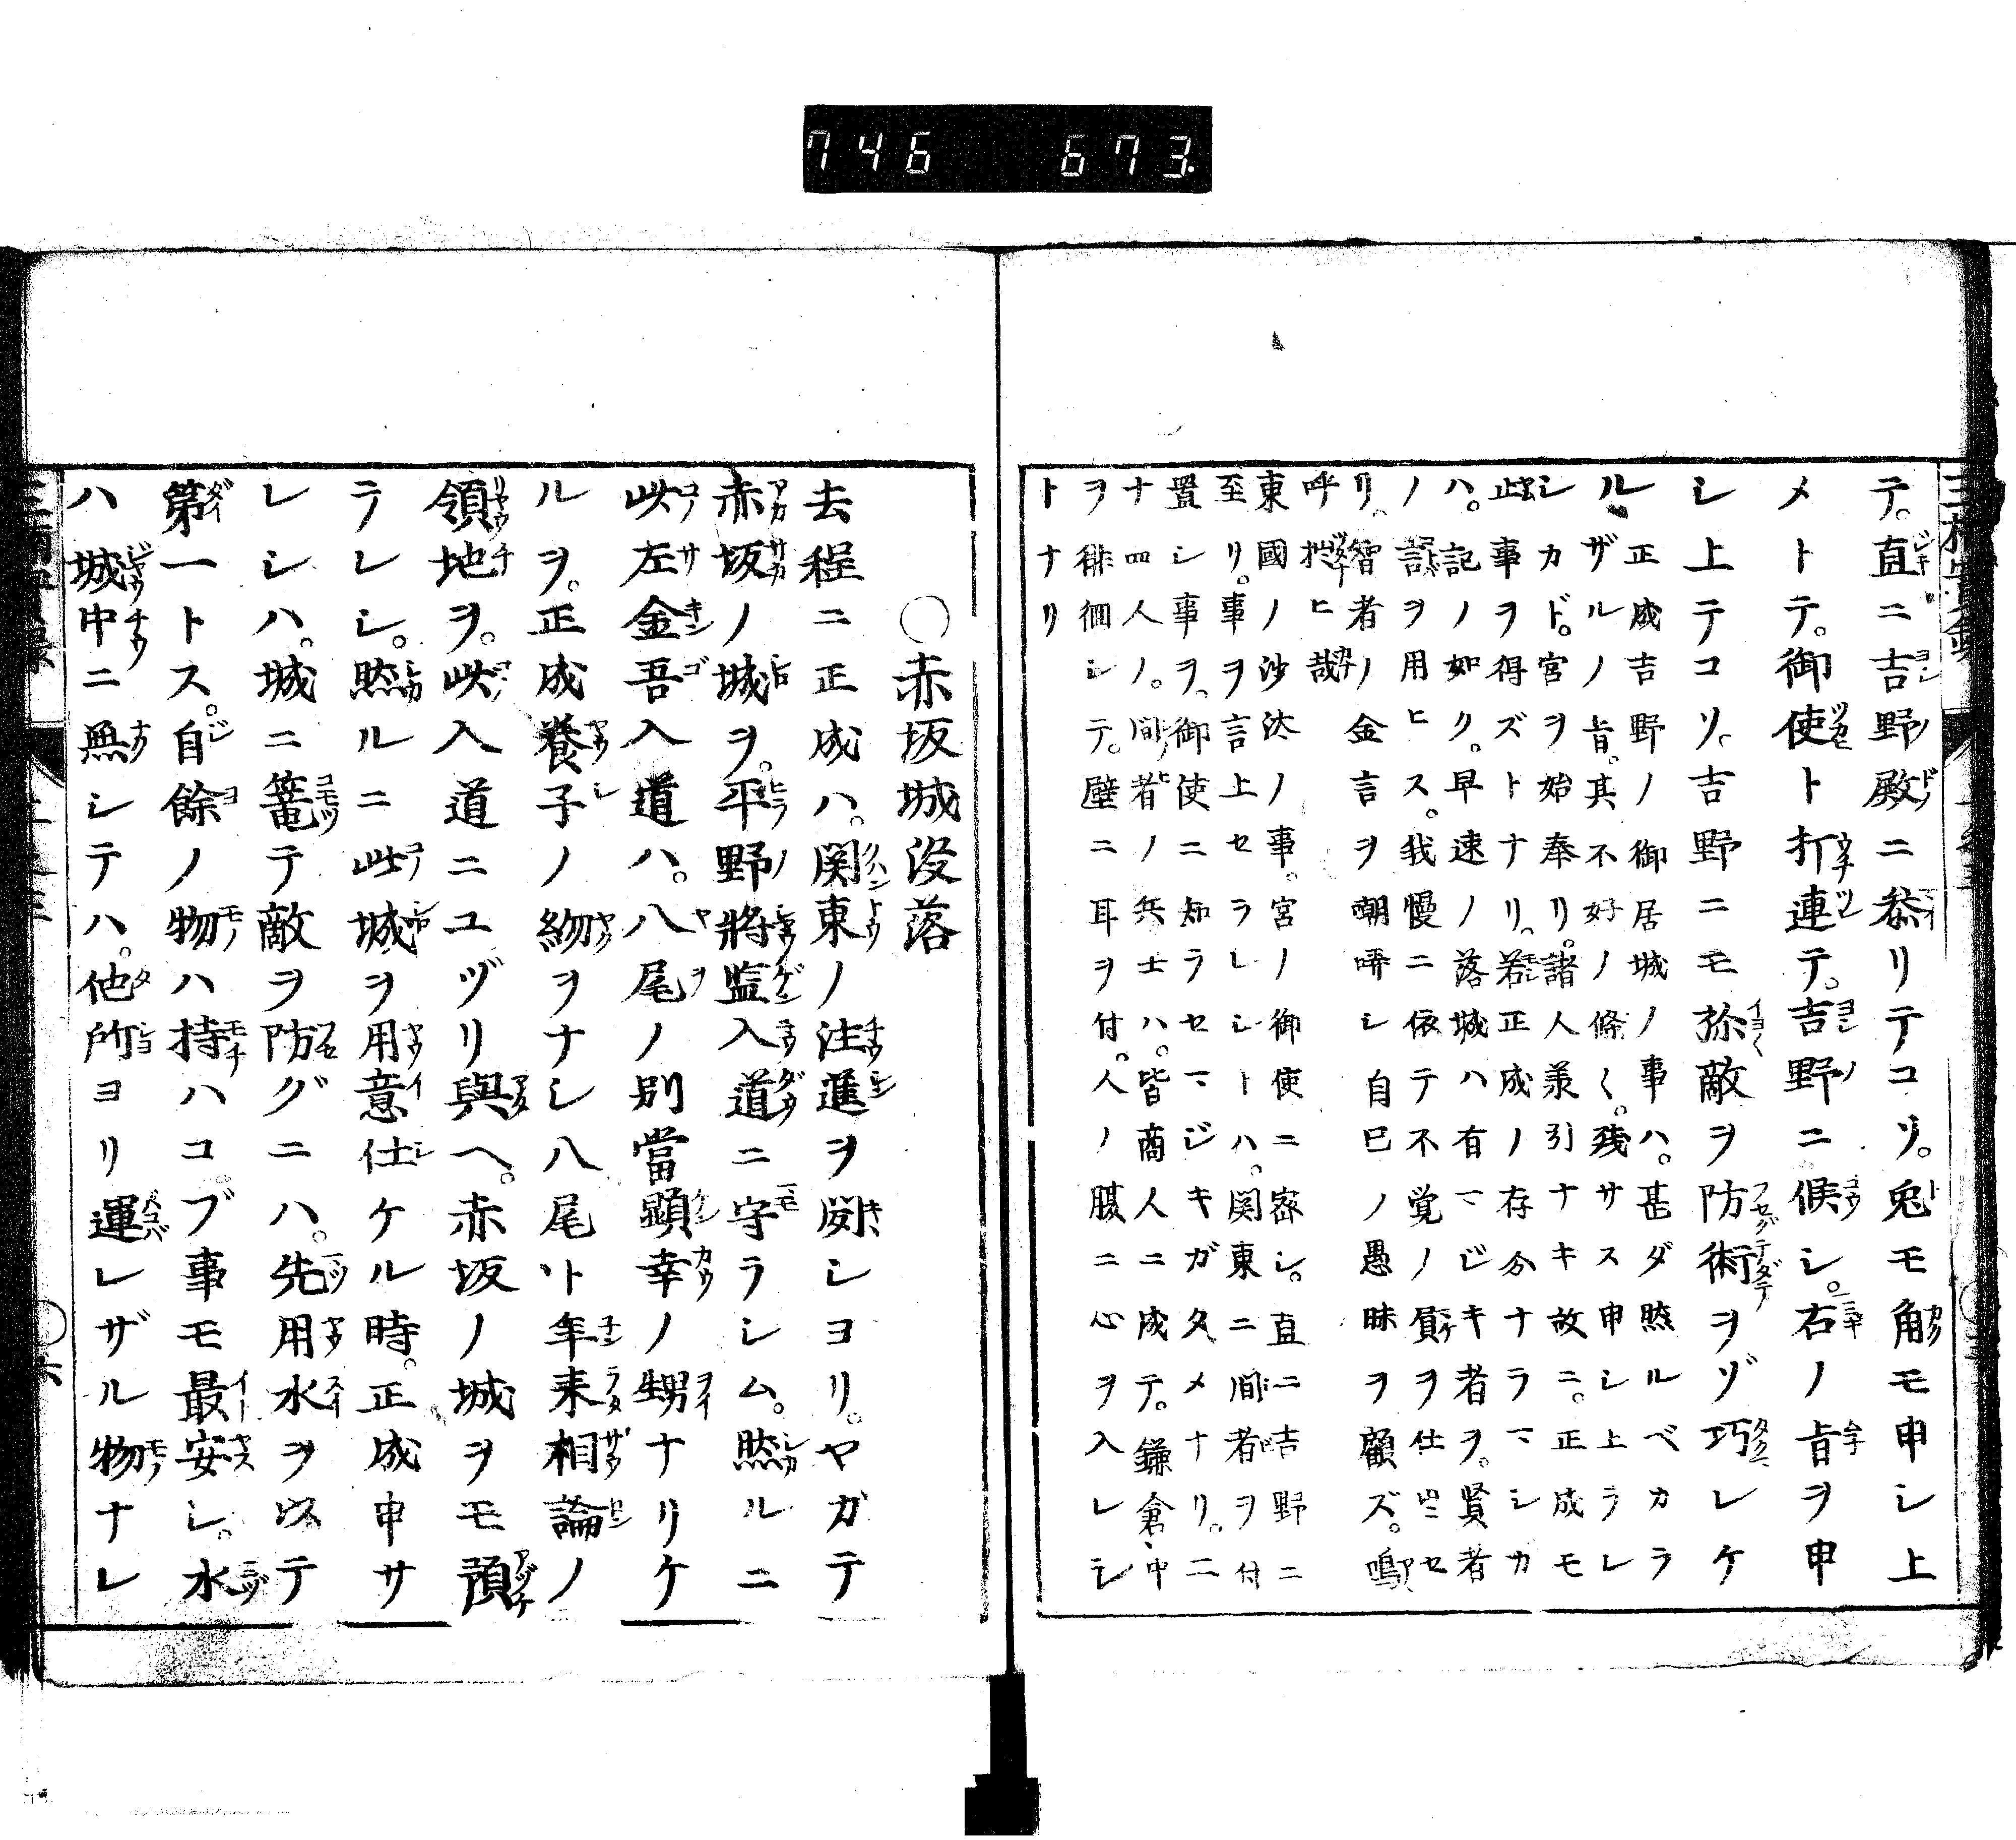 746 673
テ。直ニ吉野殿ニ参リテコソ。兎モ角モ申シ上
メトテ。御使ト打連テ。吉野ニ候シ。右ノ旨ヲ申
シ上テコソ。吉野ニモ弥敵ヲ防術ヲゾ巧レケ
ル 正成吉野ノ御居城ノ事ハ。甚ダ然ルベカラ
ザルノ旨。其不好ノ條〻。残サス申シ上ラレ
シカド。宮ヲ始奉リ。諸人羕引ナキ故ニ。正成モ
止事ヲ得ズトナリ。若正成ノ存分ナラマシカ
ハ。記ノ如ク。早速ノ落城ハ有マジキ者ヲ。賢者
ノ言ヲ用ヒス。我慢ニ依テ不覚ノ負ヲ仕出セ
リ。智者ノ金言ヲ嘲哢シ自己ノ愚昧ヲ顧ズ。嗚
呼拙ヒ哉
東國ノ沙汰ノ事。宮ノ御使ニ密シ。直ニ吉野ニ
至リ。事ヲ言上セラレシトハ。関東ニ間者ヲ付
置シ事ヲ。御使ニ知ラセマジキガタメナリ。二
ナ四人ノ。間者ノ兵士ハ。皆商人ニ成テ。鎌倉中
ヲ徘徊シテ。壁ニ耳ヲ付。人ノ腹ニ心ヲ入レシ
トナリ
○赤坂城没落
去程ニ正成ハ。関東ノ注進ヲ聞シヨリ。ヤガテ
赤坂ノ城ヲ。平野將監入道ニ守ラシム。然ルニ
此左金吾入道ハ。八尾ノ別當顕幸ノ甥ナリケ
ルヲ。正成養子ノ約ヲナシ八尾ト年来相論ノ
領地ヲ。此入道ニユヅリ與ヘ。赤坂ノ城ヲモ預
ラレシ。然ルニ此城ヲ用意仕ケル時。正成申サ
レシハ。城ニ篭テ敵ヲ防グニハ。先用水ヲ以テ
第一トス。自餘ノ物ハ持ハコブ事モ最安シ。水
ハ城中ニ無シテハ。他所ヨリ運レザル物ナレ